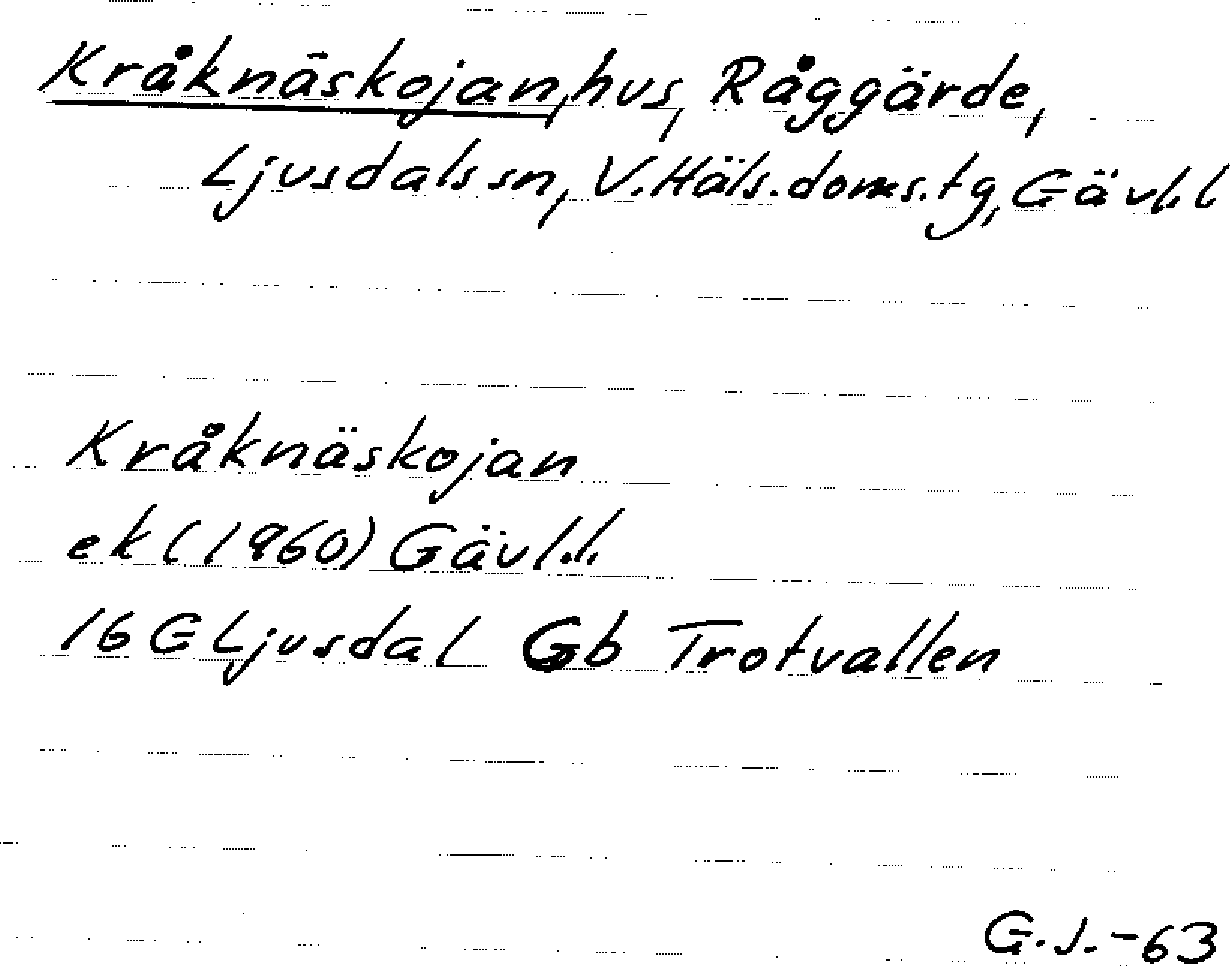 Kråknäskojan, hus, Råggärde,
Ljusdals sn, V. Häls. doms. tg, Gävl. l
Kråknäskojan
ek (1960) Gävl. l.
16 G Ljusdal Gb Trotvallen
G. J. -63